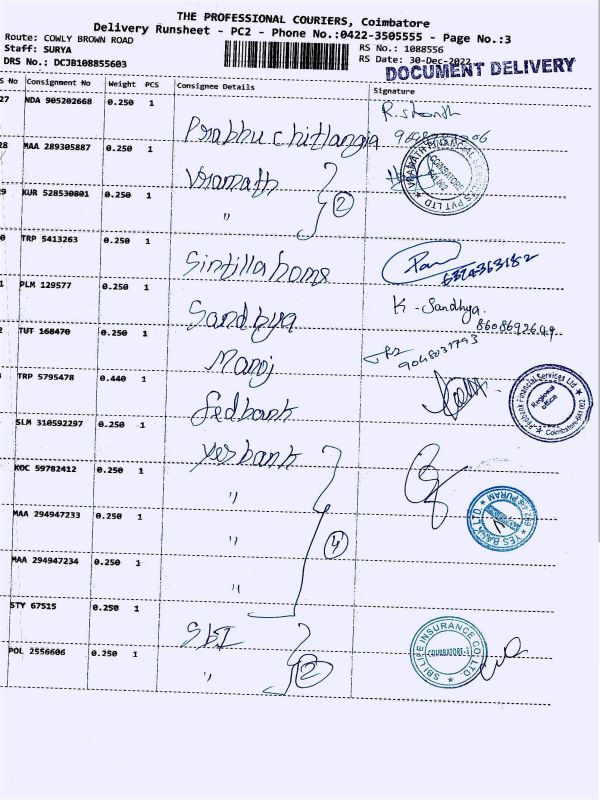 THE PROFESSIONAL COURIERS, Coimbatore
Delivery Runsheet - PC2 - Phone No.:0422-3505555 - Page No.:3
Route: COWLY BROWN ROAD
Staff: SURYA
DRS No.: DCJB108855603
RS No.: 1088556
RS Date: 30-Dec-2022
DOCUMENT DELIVERY
S No Consignment No Weight PCS Consignee Details Signature
27 NDA 905202668 0.250 1 Prabhu chitlangia
28 MAA 289305887 0.250 1 Vramath
9 KUR 528530801 0.250 1 " 2
VRAMATH FINANCIAL SERVICES PVT LTD
COIMBATORE
0 TRP 5413263 0.250 1 Sintilla home 6374363182
1 PLM 129577 0.250 1 Sandhya K - Sandhya. 8608692649
2 TUT 168470 0.250 1 Manoj 9048031793
TRP 5795478 0.440 1 fedbank
Fedbank Financial Services Ltd
Regional Office
Coimbatore-641 002
SLM 310592297 0.250 1 yes bank
KOC 59782412 0.250 1 "
MAA 294947233 0.250 1 " 4
MAA 294947234 0.250 1 "
YES BANK LTD
PURAM
STY 67515 0.250 1 SbI
POL 2556606 0.250 1 " 2
SBI LIFE INSURANCE CO. LTD
COIMBATORE-3